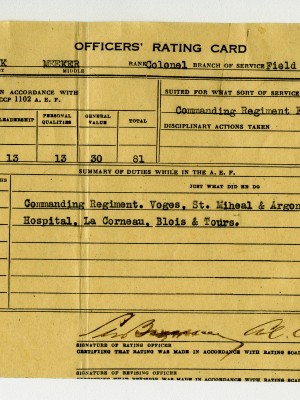 OFFICERS' RATING CARD
K MEEKER RANK Colonel BRANCH OF SERVICE Field
MIDDLE
N ACCORDANCE WITH
OCP 1102 A. E. F.
SUITED FOR WHAT SORT OF SERVICE
Commanding Regiment
LEADERSHIP PERSONAL QUALITIES GENERAL VALUE TOTAL
DISCIPLINARY ACTIONS TAKEN
13 13 30 81
SUMMARY OF DUTIES WHILE IN THE A. E. F.
JUST WHAT DID HE DO
Commanding Regiment. Voges, St. Miheal & Argon
Hospital, La Corneau, Blois & Tours.
SIGNATURE OF RATING OFFICER
CERTIFYING THAT RATING WAS MADE IN ACCORDANCE WITH RATING SCAL
SIGNATURE OF REVISING OFFICER